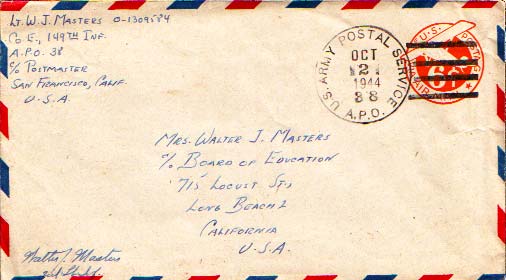 Lt. W. J. Masters O-1309584
Co E., 149th Inf.
A.P.O. 38
c/o Postmaster
San Francisco, Calif.
U.S.A.
U.S. ARMY POSTAL SERVICE
OCT
2
1944
38
A.P.O.
U.S. POSTAGE
6¢
VIA AIR MAIL
Mrs. Walter J. Masters
c/o Board of Education
715 Locust St.,
Long Beach 2
California
U.S.A.
Walter J. Masters